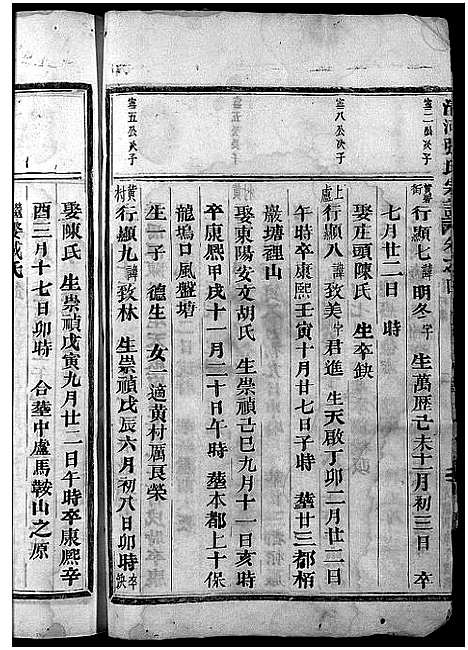 清河張氏宗譜
寔二公次子
黃碧街 行顯七 諱明冬 字 生萬歷己未十一月初三日 卒
七月廿二日 時
娶庄頭陳氏 生卒缺
寔八公次子
上盧 行顯八 諱致美 字君進 生天啟丁卯二月廿二日
午時卒康熙壬寅十月廿七日子時 塟廿三都栢
巖塘裡山
娶東陽安文胡氏 生崇禎己巳九月十一日亥時
卒康熙甲戌十一月二十日午時 塟本都上十保
龍塢口風盤塘
生一子 德生 女一適黃村厲良榮
寔五公次子
黃村 行顯九 諱致林 生崇禎戊辰六月初八日卯時 卒缺
娶陳氏 生崇禎戊寅九月廿二日午時卒康熙辛
酉三月十七日卯時 合塟中盧馬鞍山之原
繼娶戚氏